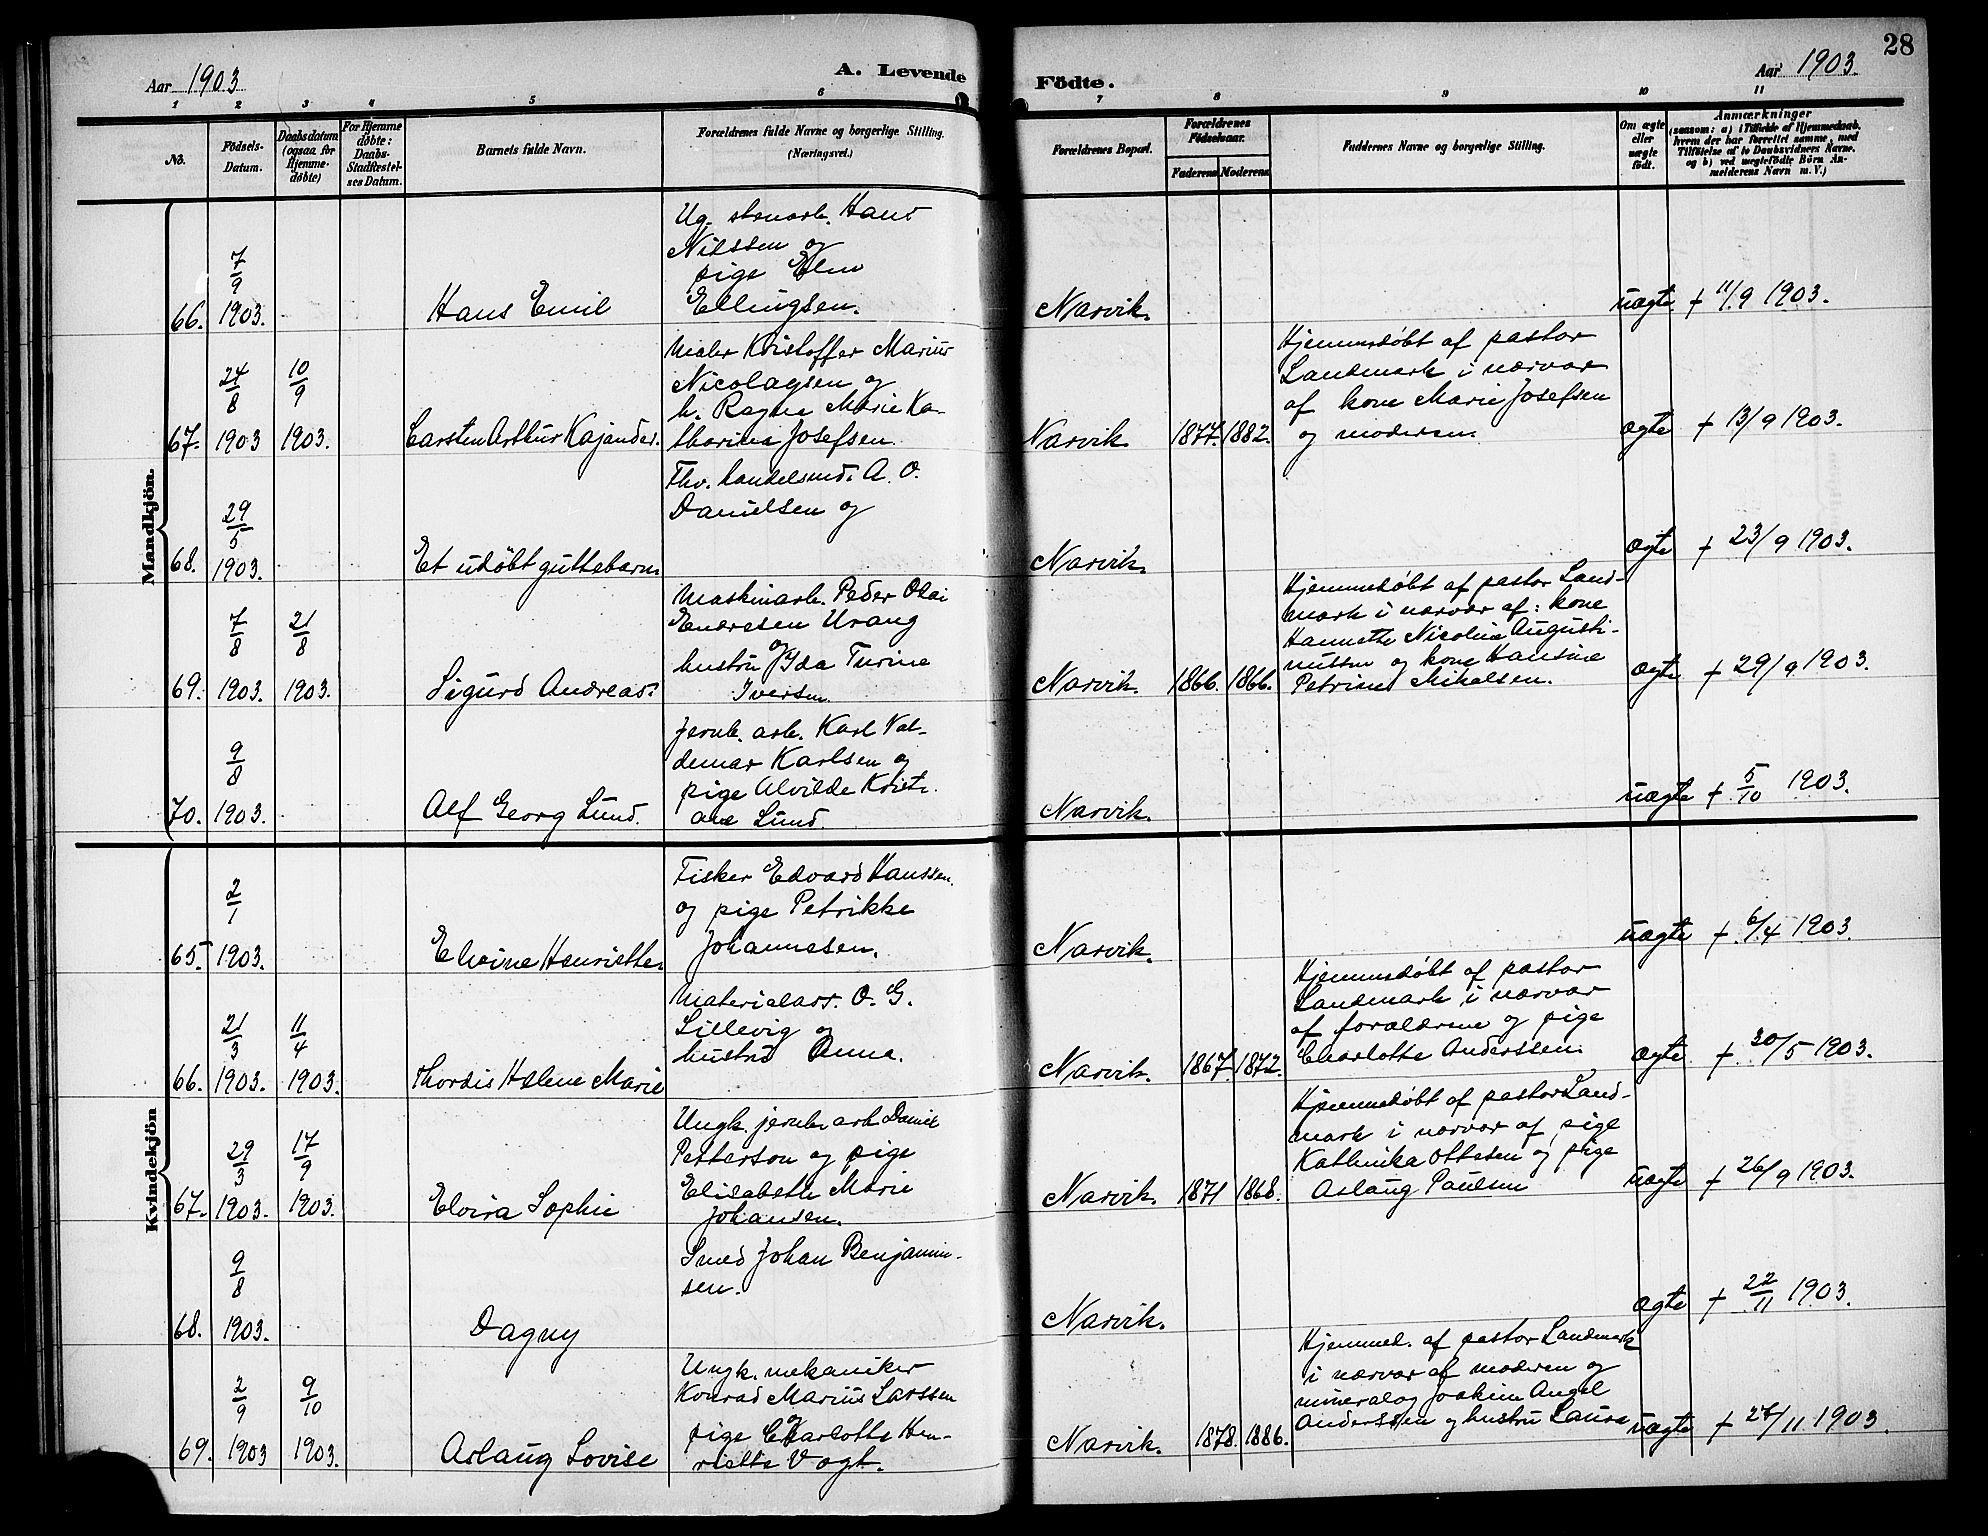 28
Aar 1903
A. Levende Födte.
Aar 1903.
1 2 3 4 5 6 7 8 9 10 11
No.
Födsels-
Datum.
Daabsdatum
(ogsaa for
Hjemme-
døbte)
For Hjemme
døbte:
Daabs-
Stadfæstel-
ses Datum.
Barnets fulde Navn.
Forældrenes fulde Navne og borgerlige Stilling.
(Næringsvei.)
Forældrenes Bopæl.
Forældrenes
Födselsaar.
Faderens Moderens
Faddernes Navne og borgerlige Stilling.
Om ægte
eller
uægte
født.
Anmærkninger
(saasom: a) i Tilfælde af Hjemmedaab,
hvem der har forrettet samme, med
Tilföielse af to Daabsvidners Navne,
og b) ved uægtefödte Börn An-
melderens Navn m. V.)
Mandkjön.
66.
7/9
1903.
Hans Emil
Ug. stenarb. Hans
Nilssen og
pige Elen
Ellingsen.
Narvik.
uægte
+ 11/9 1903.
67.
24/8
1903
10/9
1903.
Carsten Arthur Kajander.
Maler Kristoffer Marius
Nicolaysen og
h. Ragna Marie Ka-
tharina Josefsen.
Narvik
1877.
1882.
Hjemmedøbt af pastor
Landmark i nærvær
af kone Marie Josefsen
og moderen.
ægte
+ 13/9 1903.
68.
29/5
1903.
Et udöbt guttebarn.
Fhv. handelsmd. A. O.
Danielsen og
Narvik.
ægte
+ 23/9 1903.
69.
7/8
1903.
21/8
1903.
Sigurd Andreas.
Maskinarb. Peder Olai
Endresen Urang
og
hustru Ida Turine
Iversen.
Narvik.
1866.
1866.
Hjemmedöbt af pastor Land-
mark i nærvær af: kone
Hannette Nicoline Augusti-
nussen og kone Hansine
Petrine Mikalsen.
ægte
+ 29/9 1903.
70.
9/8
1903.
Alf Georg Lund.
Jernb. arb. Karl Val-
demar Karlsen og
pige Alvilde Kristi-
ane Lund.
Narvik.
uægte
+ 5/10 1903.
Kvindekjön
65
2/1
1903.
Elvine Henriette.
Fisker Edvard Hanssen.
og pige Petrikke
Johannesen.
Narvik.
uægte
+ 6/4 1903.
66.
21/3
1903.
11/4
1903.
Thordis Helene Marie
Materialass. O. G.
Lillevig og
hustru Anna.
Narvik.
1867.
1872.
Hjemmedöbt af pastor
Landmark i nærvær
af forældrene og pige
Charlotte Anderssen.
ægte
+ 20/5 1903.
67.
29/3
1903.
17/9
1903.
Elvira Sophie
Ungk. jernb. arb. Daniel
Petterson og pige
Elisabeth Marie
Johansen.
Narvik.
1871
1868.
Hjemmedöbt af pastor Land-
mark i nærvær af pige
Kathinka Ottesen og pige
Aslaug Paulsen
uægte
+ 26/9 1903.
68.
9/8
1903.
Dagny
Smed Johan Benjamin-
sen.
Narvik.
ægte
+ 22/11 1903.
69.
2/9
1903
9/10
1903.
Aslaug Lovise
Ungk. mekaniker
Konrad Marius Larssen
og
pige Charlotte Hen-
riette Vogt.
Narvik.
1878.
1886.
Hjemmed. af pastor Landmark
i nærvær af moderen og
mineralog Joakim Angel
Anderssen og hustru Laura
uægte
+ 27/11 1903.